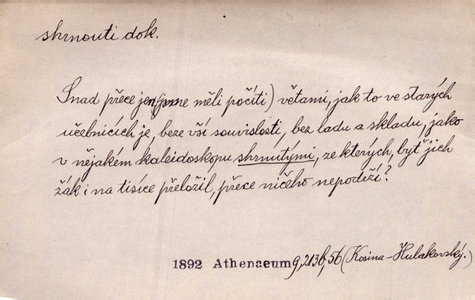 shrnouti dok.
Snad přece jen (jsme měli počíti) větami, jak to ve starých
učebnicích je, beze vší souvislosti, bez ladu a skladu, jako
v nějakém kaleidoskopu shrnutými, ze kterých, byť jich
žák i na tisíce přeložil, přece ničeho nepodrží?
1892 Athenaeum 9, 56 (Kosina-Hulakovský.)